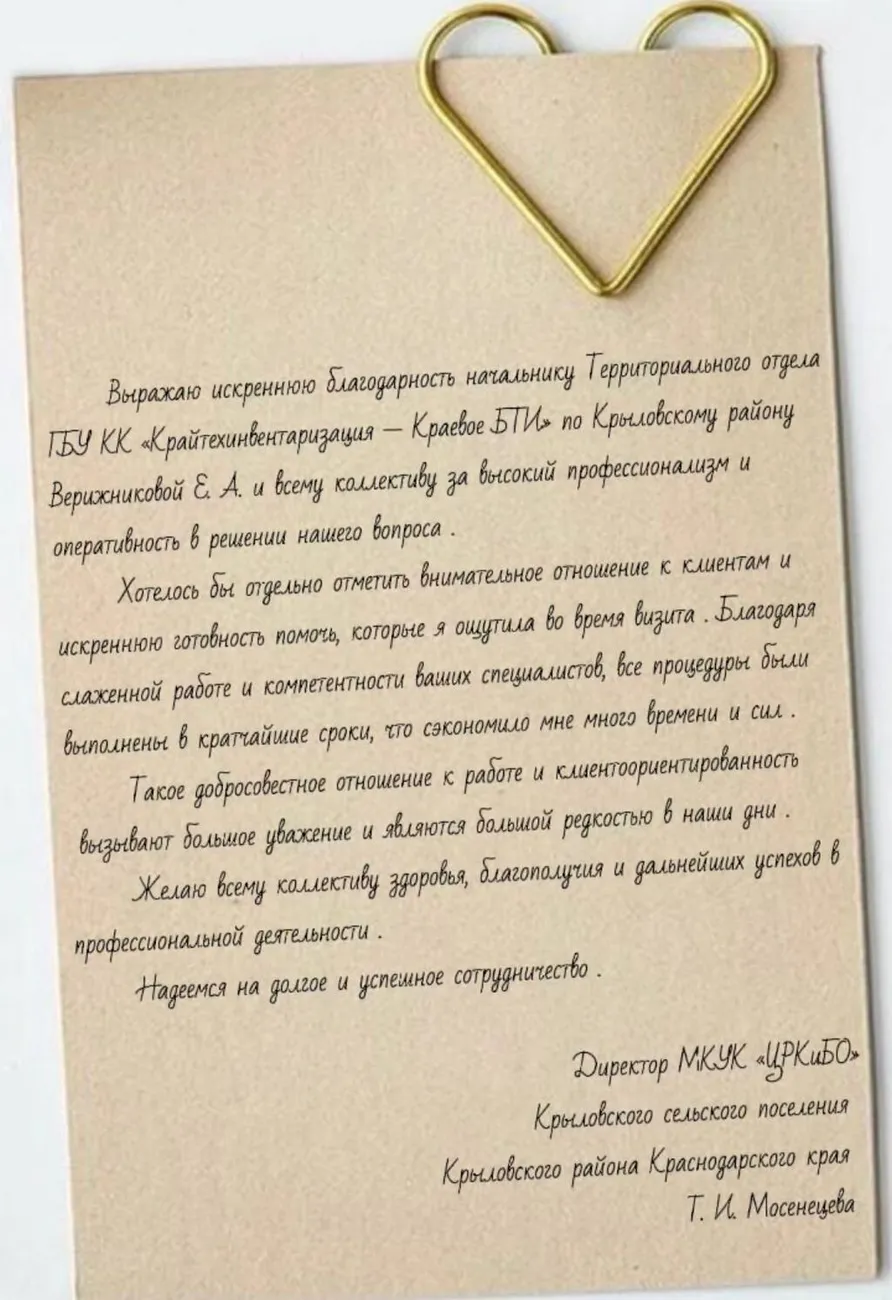 Выражаю искреннюю благодарность начальнику Территориального отдела
ГБУ КК «Крайтехинвентаризация — Краевое БТИ» по Крыловскому району
Верижниковой Е. А. и всему коллективу за высокий профессионализм и
оперативность в решении нашего вопроса .
Хотелось бы отдельно отметить внимательное отношение к клиентам и
искреннюю готовность помочь, которые я ощутила во время визита . Благодаря
слаженной работе и компетентности ваших специалистов, все процедуры были
выполнены в кратчайшие сроки, что сэкономило мне много времени и сил .
Такое добросовестное отношение к работе и клиентоориентированность
вызывают большое уважение и являются большой редкостью в наши дни .
Желаю всему коллективу здоровья, благополучия и дальнейших успехов в
профессиональной деятельности .
Надеемся на долгое и успешное сотрудничество .
Директор МКУК «ЦРКиБО»
Крыловского сельского поселения
Крыловского района Краснодарского края
Т. И. Мосенецева